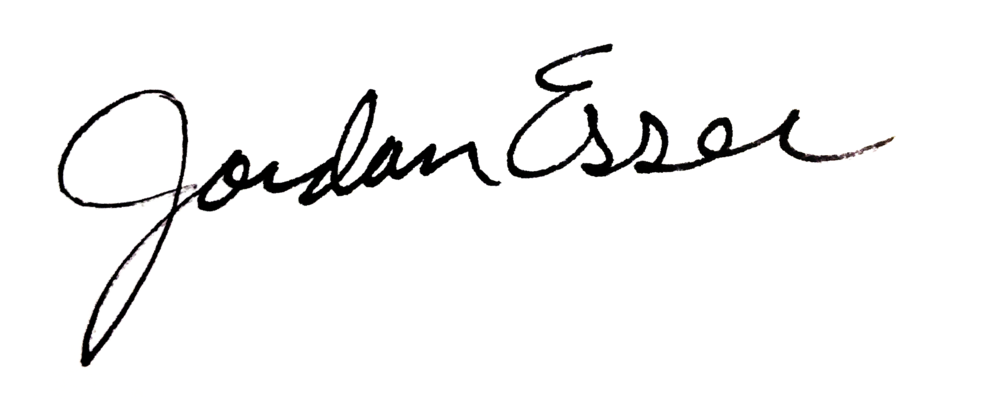 Jordan Esser